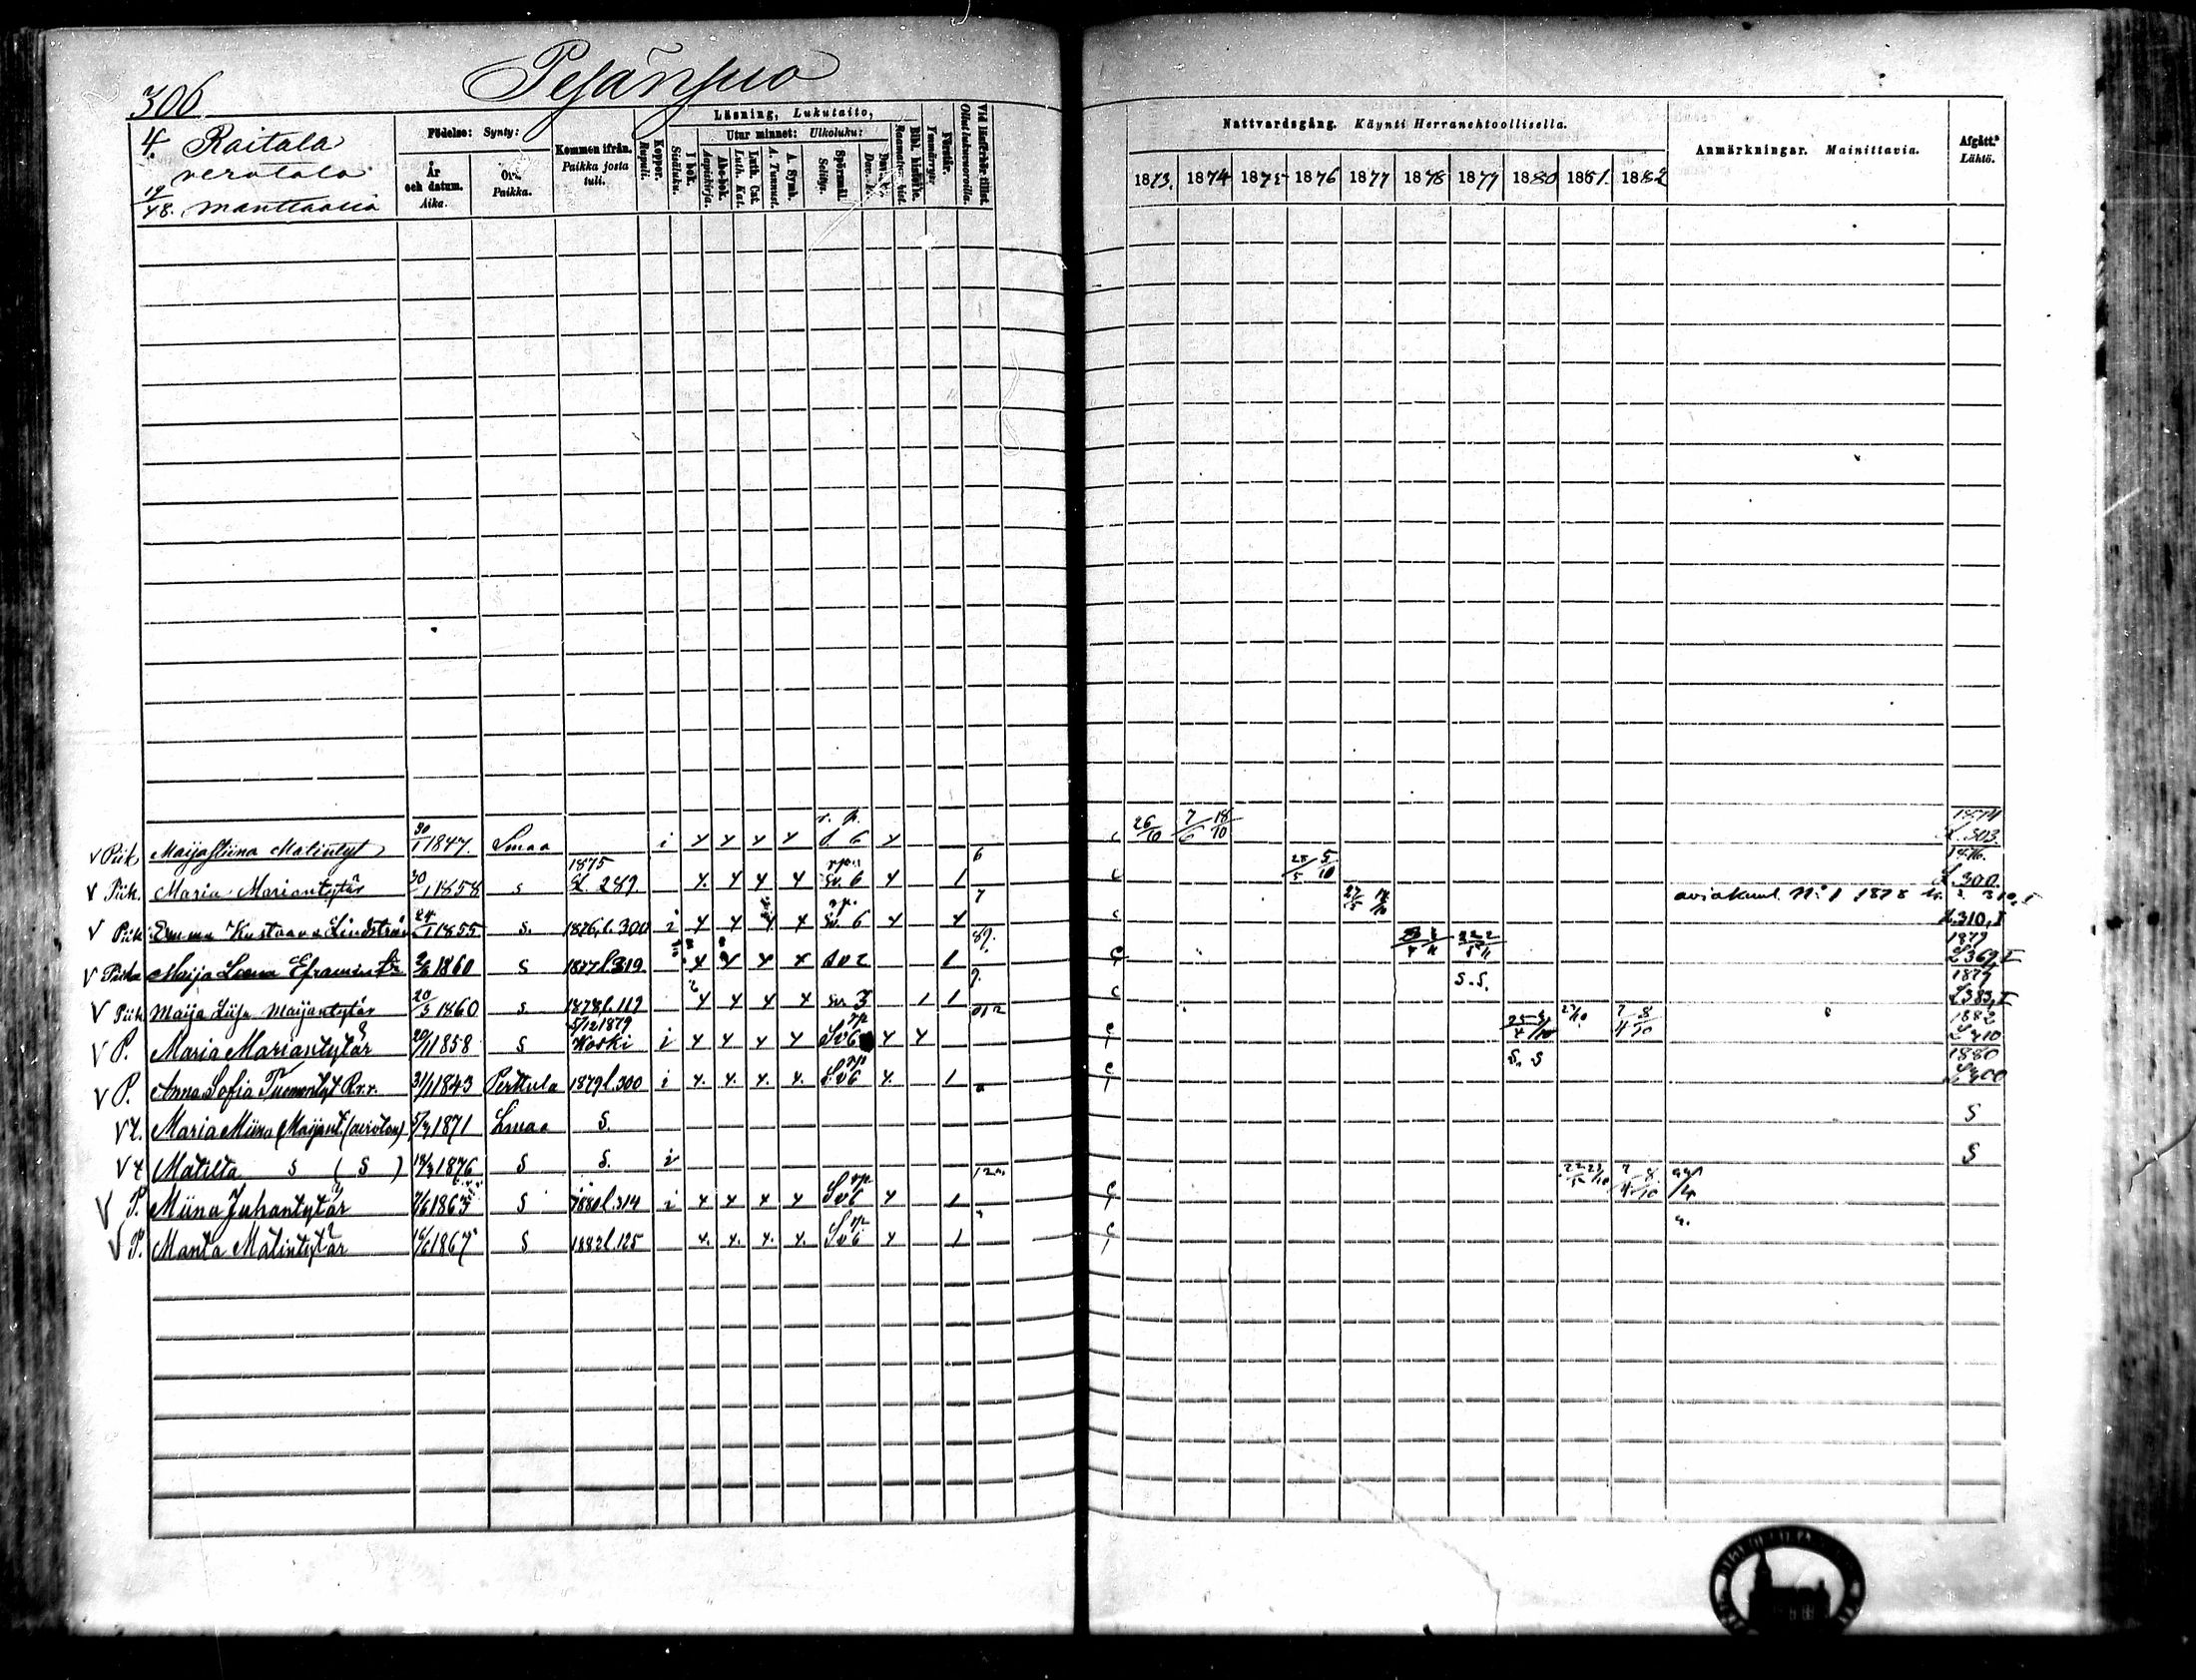 306 Pesänsuo
4. Raitala
verotalo
19/48. manttaalia
Födelse: Synty:
År och datum. Aika.
Ort. Paikka.
Kommen ifrån. Paikka josta tuli.
Koppor. Rupuli.
Läsning, Lukutaito,
I bok. Sisäluku.
Utur minnet: Ulkoluku:
Abc-bok. Aapiskirja.
Luth. Cat. Luth. Kat.
A. Symb. A. Tunnust.
Spörsmål. Selitys.
Dav. Ps. Dav. Ps.
Bibl. historie. Raamatun hist.
Förstår. Ymmärrys.
Vid läsförhör tillst. Ollut lukuvuoroilla.
Nattvardsgång. Käynti Herranehtoollisella.
1873. 1874 1875 1876 1877 1878 1879 1880 1881. 1882
Anmärkningar. Mainittavia.
Afgått. Lähtö.
V Piik. Maija Miina Matintyt 30/1 1847. Lmaa i 4 4 4 4 6 4 c 26/10 7/6 18/10 1874 L. 303.
V Piik. Maria Mariantytär 30/1 1858 s 1875 L. 289. 4. 4 4 4 Sv. 6 4 1 6 c 25/5 5/10 1876. L 300.
V Piik. Emma Kustaava Lindström 24/1 1855 s. 1876, l. 300 i 4 4 4 4 Sv. 6 4 4 7 c 1878 L 310, I
V Piika Maija Leena Eframint 1860 s 1877 l. 319 4 4 4 4 Sv 2 1 89. c 1879 L 369, I
V Piik. Maija Liisa Maijantytär 20/3 1860 s 1878, l. 119 4 4 4 4 Sv 3 1 1 9. c s. s. 1879 L 383, I
V P. Maria Mariantytär 20/11 1858 s 5/12 1879 Koski i 4 4 4 4 Sv 6 4 4 012 c 27/10 7/4 8/10 1882 L 410
V P. Anna Sofia Tuomentyt R.v.v. 31/1 1843 Perttula 1879 l. 300 i 4. 4. 4. 4. Sv 6 4. 1 c s. s 1880 L 400
V t. Maria Miina (Maijant. (avioton) 5/3 1871 Lmaa s. s
V t Matilta s ( s ) 18/3 1876 s s. i s
V P. Miina Juhantytär 7/6 1863 s 1880 l. 314 i 4 4 4 4 Sv 6 4 1 c 7/4 8/10
V P. Manta Matintytär 16/6 1867 s 1882 l. 125 4. 4. 4. 4. Sv 6 4 1 c